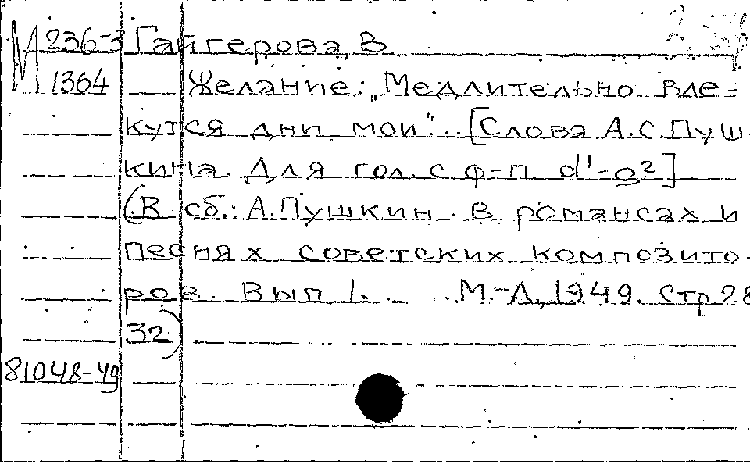 М 236-3 Гайгерова, В.
1364 Желание: „Медлительно вле-
кутся дни мои". [Слова А.С.Пуш-
кина. Для гол. с ф-п d'-g²]
(В сб.: А.Пушкин в романсах и
песнях советских композито-
ров. Вып 1. М.-Л., 1949. Стр 28
32)
81048-49